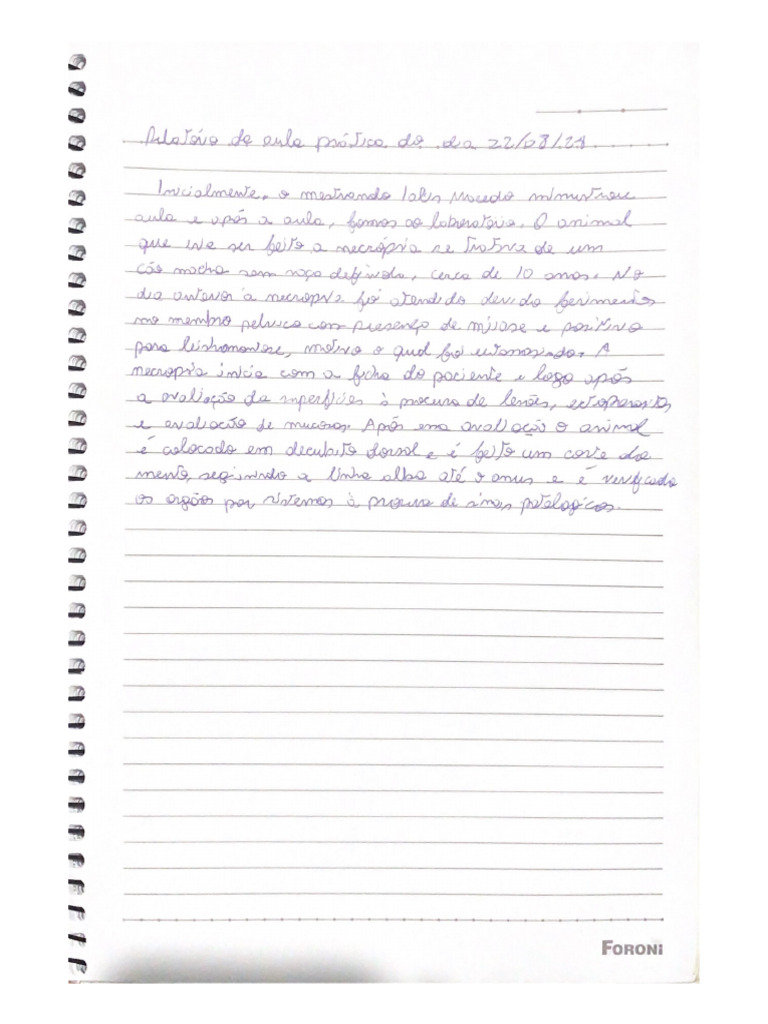 Relatório de aula prática do dia 22/08/21.
Inicialmente, o mestrando Macedo ministrou
aula e após a aula, fomos ao laboratório. O animal
que iria ser feito a necrópria se tratava de um
cão macho sem raça definida, cerca de 10 anos. No
dia anterior à necropria foi atendido devido ferimentos
no membro pelvico com presença de miiase e positivo
para leishmaniose, motivo o qual foi eutanasiado. A
necropria inicia com a ficha do paciente e logo após
a avaliação da superfícies à procura de lesões, ectoparasitos
e avaliação de mucosas. Após essa avaliação o animal
é colocado em decubito dorsal e é feito um corte do
mento, seguindo a linha alba até o anus e é verificado
os orgãos por sistemas à procura de sinais patologicos.
FORONI